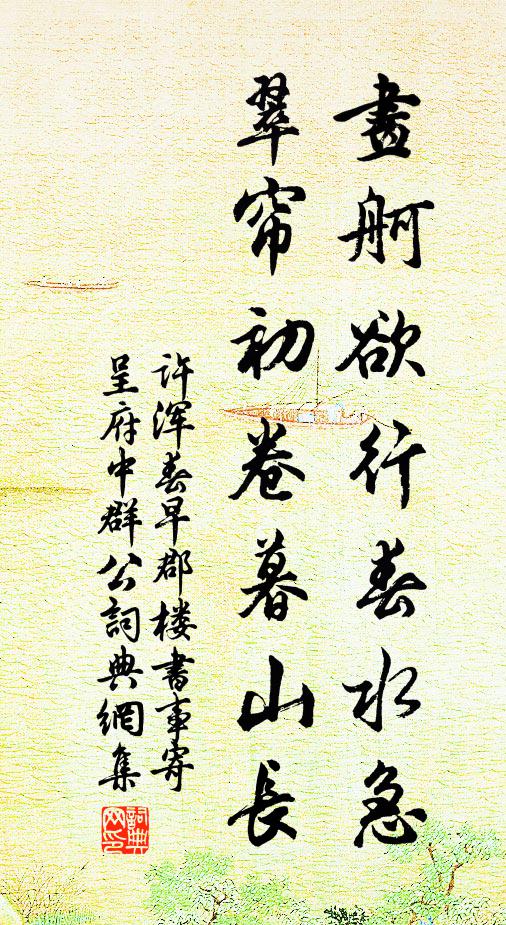 畫舸欲行春水急
翠帘初卷暮山長
许渾春早郡楼書事寄
呈府中群公詞典網集
詞典网印